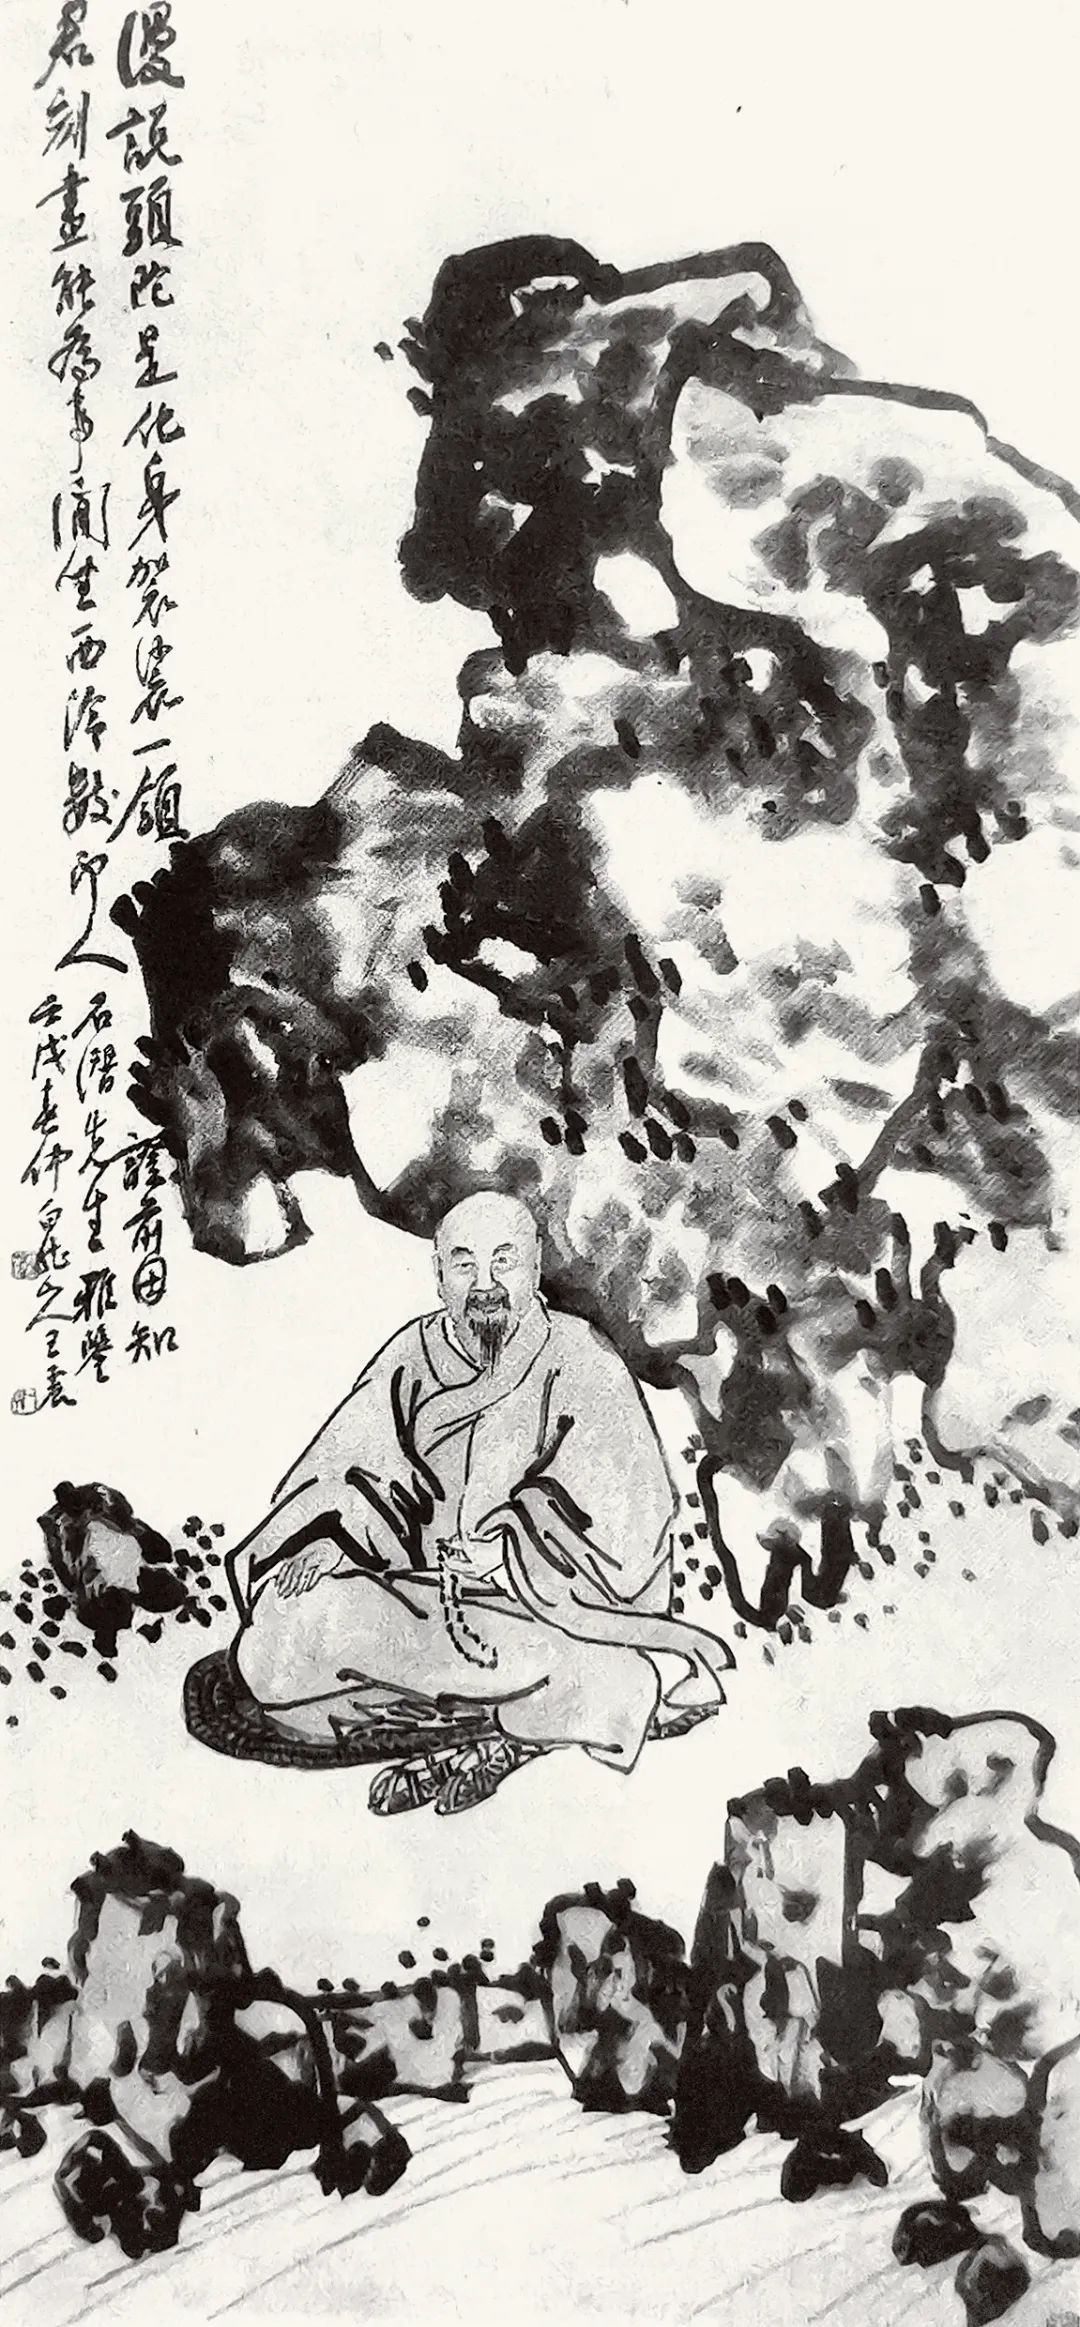 漫說頭陀是化身袈裟一領證前因知
君刻畫能為事閒坐西泠數印人
石潛先生雅鑒
壬戌春仲白龍山人王震